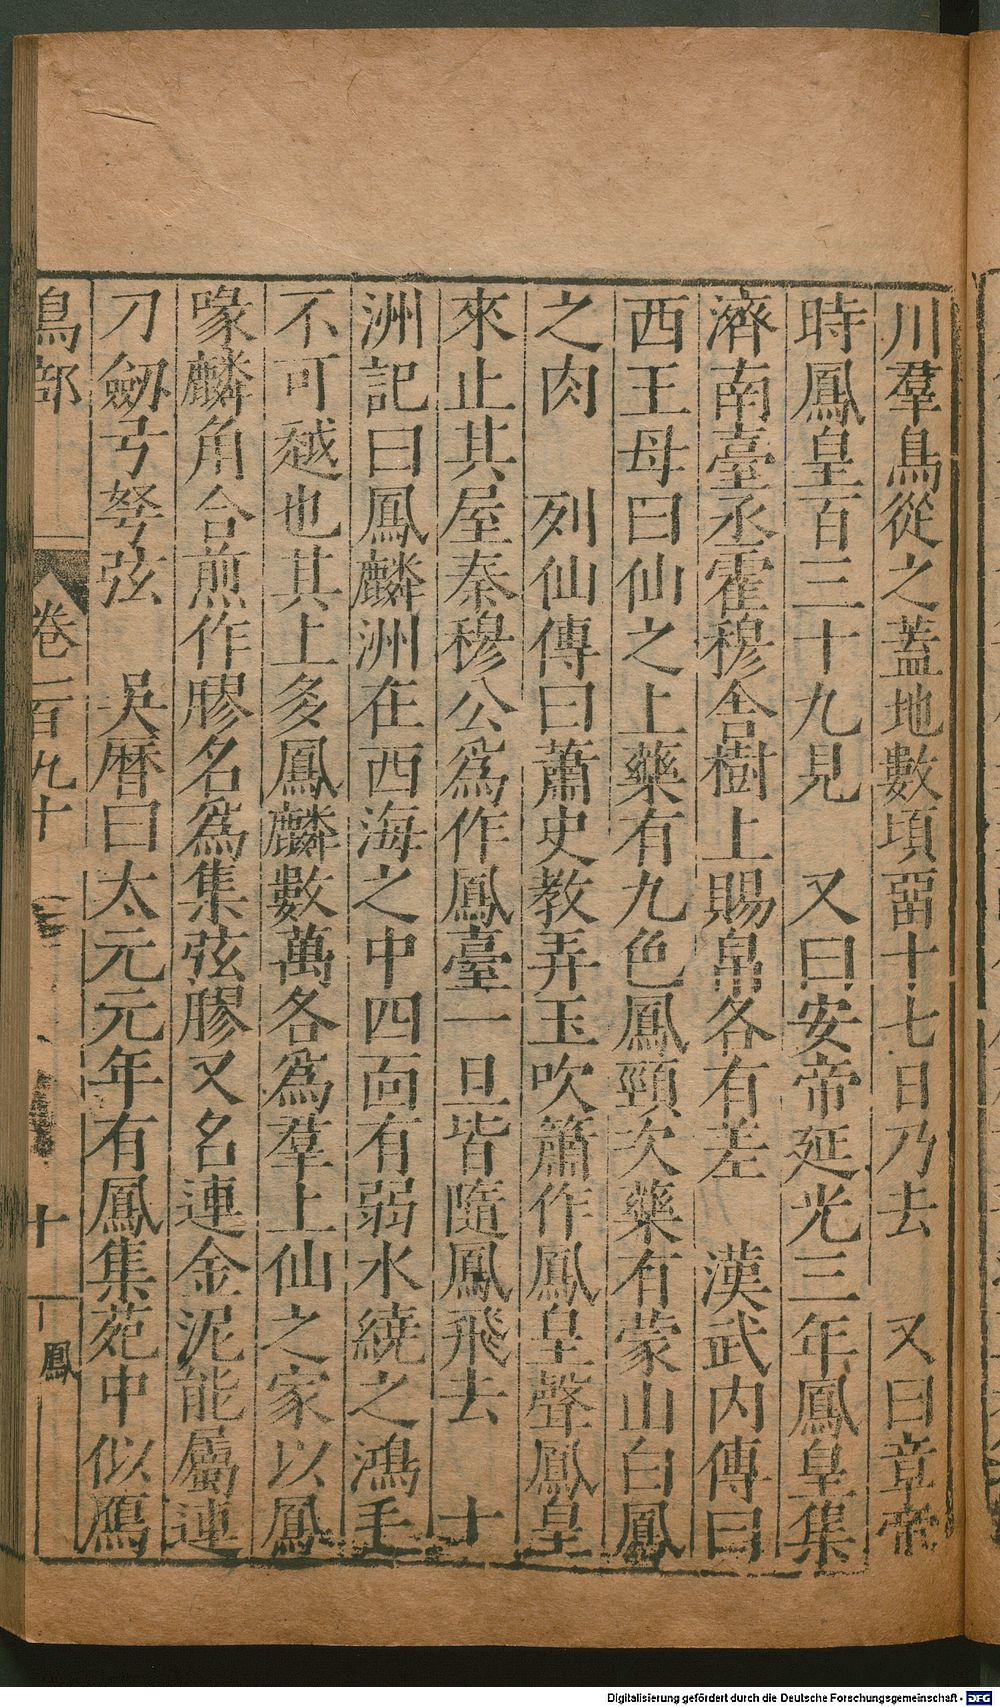 川羣鳥從之蓋地數項畱十七日乃去　又曰章帝
時鳳皇百三十九見　又曰安帝延光三年鳳皇集
濟南臺丞霍穆舍樹上賜帛各有差　漢武内傳曰
西王母曰仙之上藥有九色鳳頸次藥有蒙山白鳳
之肉　列仙傳曰蕭史教弄玉吹簫作鳳皇聲鳳皇
來止其屋秦穆公爲作鳳臺一旦皆隨鳳飛去　十
洲記曰鳳麟洲在西海之中四面有弱水繞之鴻毛
不可越也其上多鳳麟數萬各爲羣上仙之家以鳳
喙麟角合煎作膠名爲集弦膠又名連金泥能屬連
刀劒弓弩弦　吳曆曰太元元年有鳳集苑中似鴈
鳥部　卷一百九十　十　鳳
Digitalisierung gefördert durch die Deutsche Forschungsgemeinschaft - DFG